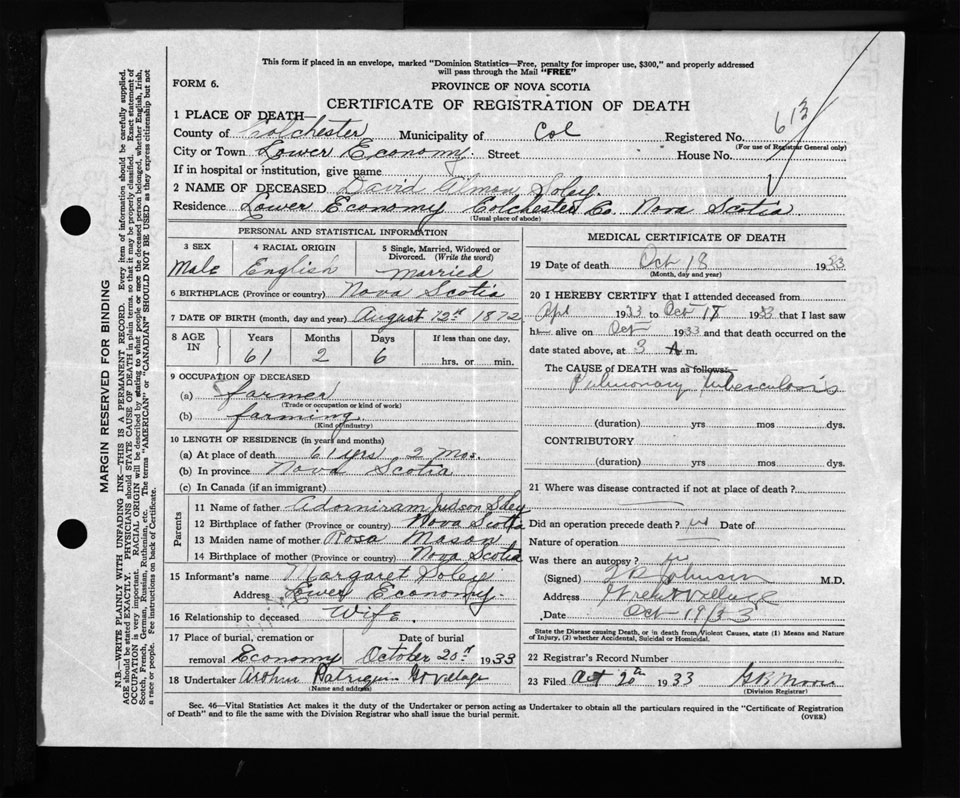 This form if placed in an envelope, marked "Dominion Statistics—Free, penalty for improper use, $300," and properly addressed
will pass through the Mail "FREE"
FORM 6.
PROVINCE OF NOVA SCOTIA
CERTIFICATE OF REGISTRATION OF DEATH
1 PLACE OF DEATH—
County of Colchester Municipality of Col Registered No. 613
(For use of Registrar General only)
City or Town Lower Economy. Street House No.
If in hospital or institution, give name
2 NAME OF DECEASED David Gilmon Soley.
Residence Lower Economy Colchester Co. Nova Scotia.
(Usual place of abode)
PERSONAL AND STATISTICAL INFORMATION
3 SEX 4 RACIAL ORIGIN 5 Single, Married, Widowed or
Divorced. (Write the word)
Male English married
6 BIRTHPLACE (Province or country) Nova Scotia
7 DATE OF BIRTH (month, day and year) August 12th 1872
8 AGE IN Years Months Days If less than one day,
61 2 6 hrs. or min.
9 OCCUPATION OF DECEASED
(a) farmer
(Trade or occupation or kind of work)
(b) farming
(Kind of industry)
10 LENGTH OF RESIDENCE (in years and months)
(a) At place of death 61 yrs 2 mos.
(b) In province Nova Scotia
(c) In Canada (if an immigrant)
Parents
11 Name of father Adorniram Judson Soley
12 Birthplace of father (Province or country) Nova Scotia
13 Maiden name of mother Rosa Mason
14 Birthplace of mother (Province or country) Nova Scotia
15 Informant's name Margaret Soley
Address Lower Economy.
16 Relationship to deceased Wife.
17 Place of burial, cremation or Date of burial
removal Economy October 20th 1933
18 Undertaker Arthur Gt Village
(Name and address)
MEDICAL CERTIFICATE OF DEATH
19 Date of death Oct 18 1933
(Month, day and year)
20 I HEREBY CERTIFY that I attended deceased from
Apl 1933 to Oct 18 1933 that I last saw
h alive on Oct 1933 and that death occurred on
date stated above, at 3 A m.
The CAUSE of DEATH was as follows:
Pulmonary tuberculosis
(duration) yrs mos dys.
CONTRIBUTORY
(duration) yrs mos dys.
21 Where was disease contracted if not at place of death?
Did an operation precede death? no Date of
Nature of operation
Was there an autopsy? no
(Signed) Johnson M.D.
Address Great Village
Date Oct 19/33
State the Disease causing Death, or in death from Violent Causes, state (1) Means and Nature
of Injury, (2) whether Accidental, Suicidal or Homicidal.
22 Registrar's Record Number
23 Filed Oct 20th 1933
(Division Registrar)
Sec. 46—Vital Statistics Act makes it the duty of the Undertaker or person acting as Undertaker to obtain all the particulars required in the "Certificate of Registration
of Death" and to file the same with the Division Registrar who shall issue the burial permit. (OVER)
MARGIN RESERVED FOR BINDING
N.B.—WRITE PLAINLY WITH UNFADING INK—THIS IS A PERMANENT RECORD. Every item of information should be carefully supplied.
AGE should be stated EXACTLY. PHYSICIANS should STATE CAUSE OF DEATH in plain terms, so that it may be properly classified. Exact statement of
OCCUPATION is very important. RACIAL ORIGIN will be described by stating to what people or race the deceased person belonged, whether English, Irish,
Scotch, French, German, Russian, Ruthenian, etc. The terms "AMERICAN" or "CANADIAN" SHOULD NOT BE USED as they express citizenship but not
a race or people. Fee instructions on back of Certificate.